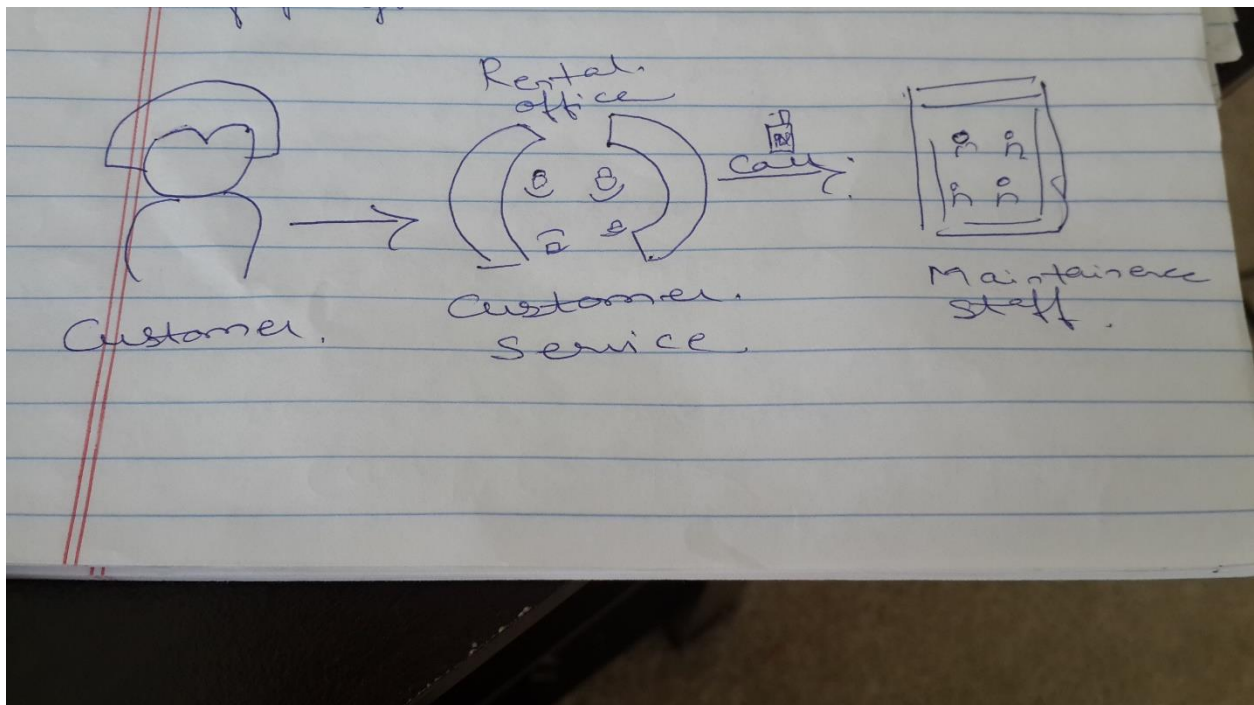 Rental.
office
Call.
Customer.
Customer.
Service
Maintainence
staff.